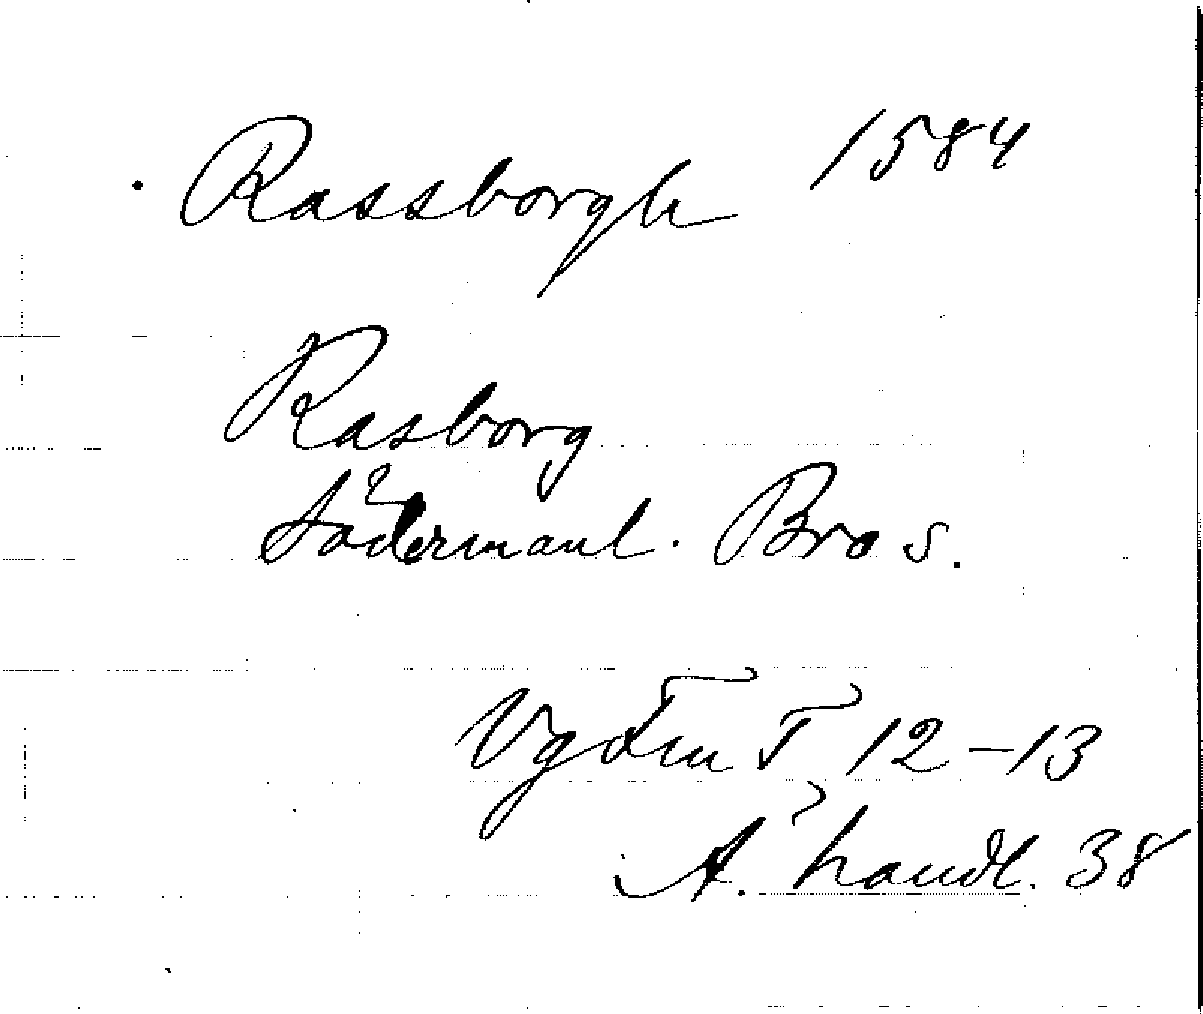 Rassborgh 1584
Rasborg
Södermanl. Bro s.
12-13
handl. 38